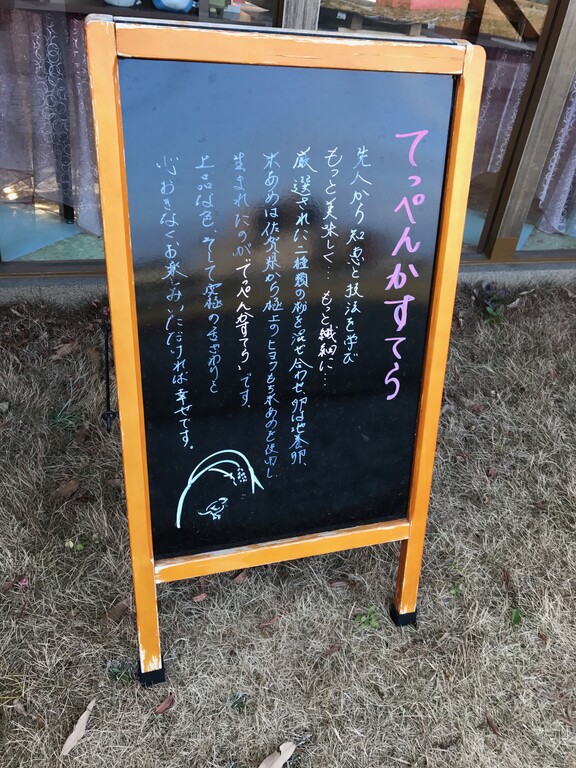 てっぺんかすてら
先人から知恵と技法を学び
もっと美味しく… もっと繊細に…
厳選された二種類の粉を混ぜ合わせ、卵は地養卵、
水あめは佐賀県から極上のヒヨクもち水あめを使用し
生まれたのが"てっぺんかすてら"です。
上品な色、そして究極のきざわりと
心おきなくお楽しみいただければ幸せです。